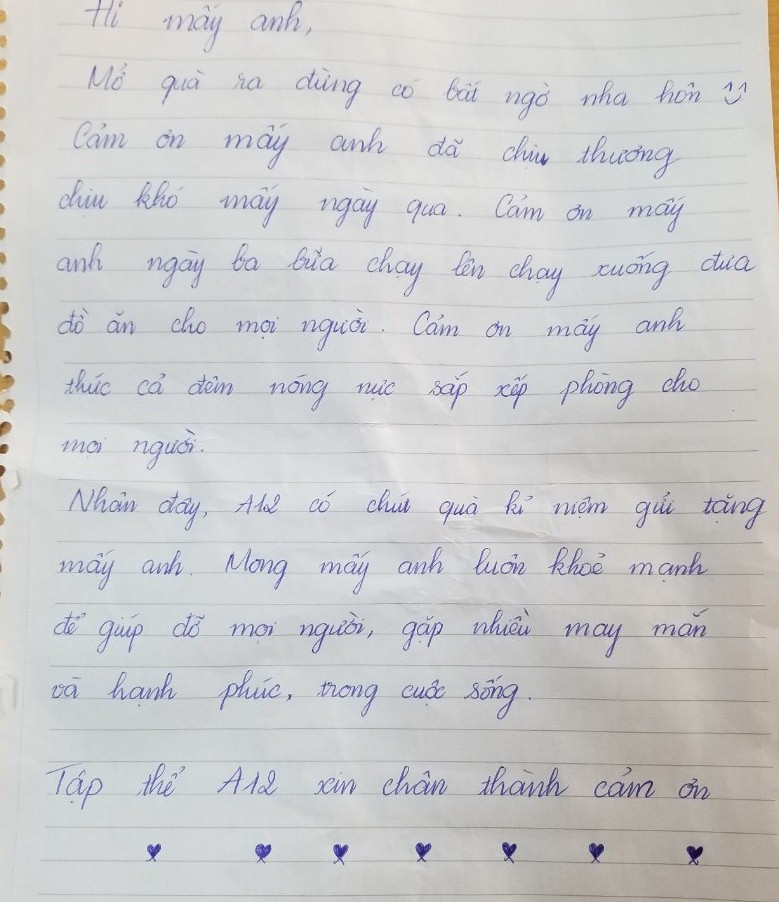 Hi mấy anh,
Mở quà ra đừng có bất ngờ nha hôn
Cảm ơn mấy anh đã chịu thương
chịu khó mấy ngày qua. Cảm ơn mấy
anh ngày ba bữa chạy lên chạy xuống đưa
đồ ăn cho mọi người. Cảm ơn mấy anh
thức cả đêm nóng nực sắp xếp phòng cho
mọi người.
Nhân đây, A12 có chút quà kỉ niệm gửi tặng
mấy anh. Mong mấy anh luôn khoẻ mạnh
để giúp đỡ mọi người, gặp nhiều may mắn
và hạnh phúc, trong cuộc sống.
Tập thể A12 xin chân thành cảm ơn